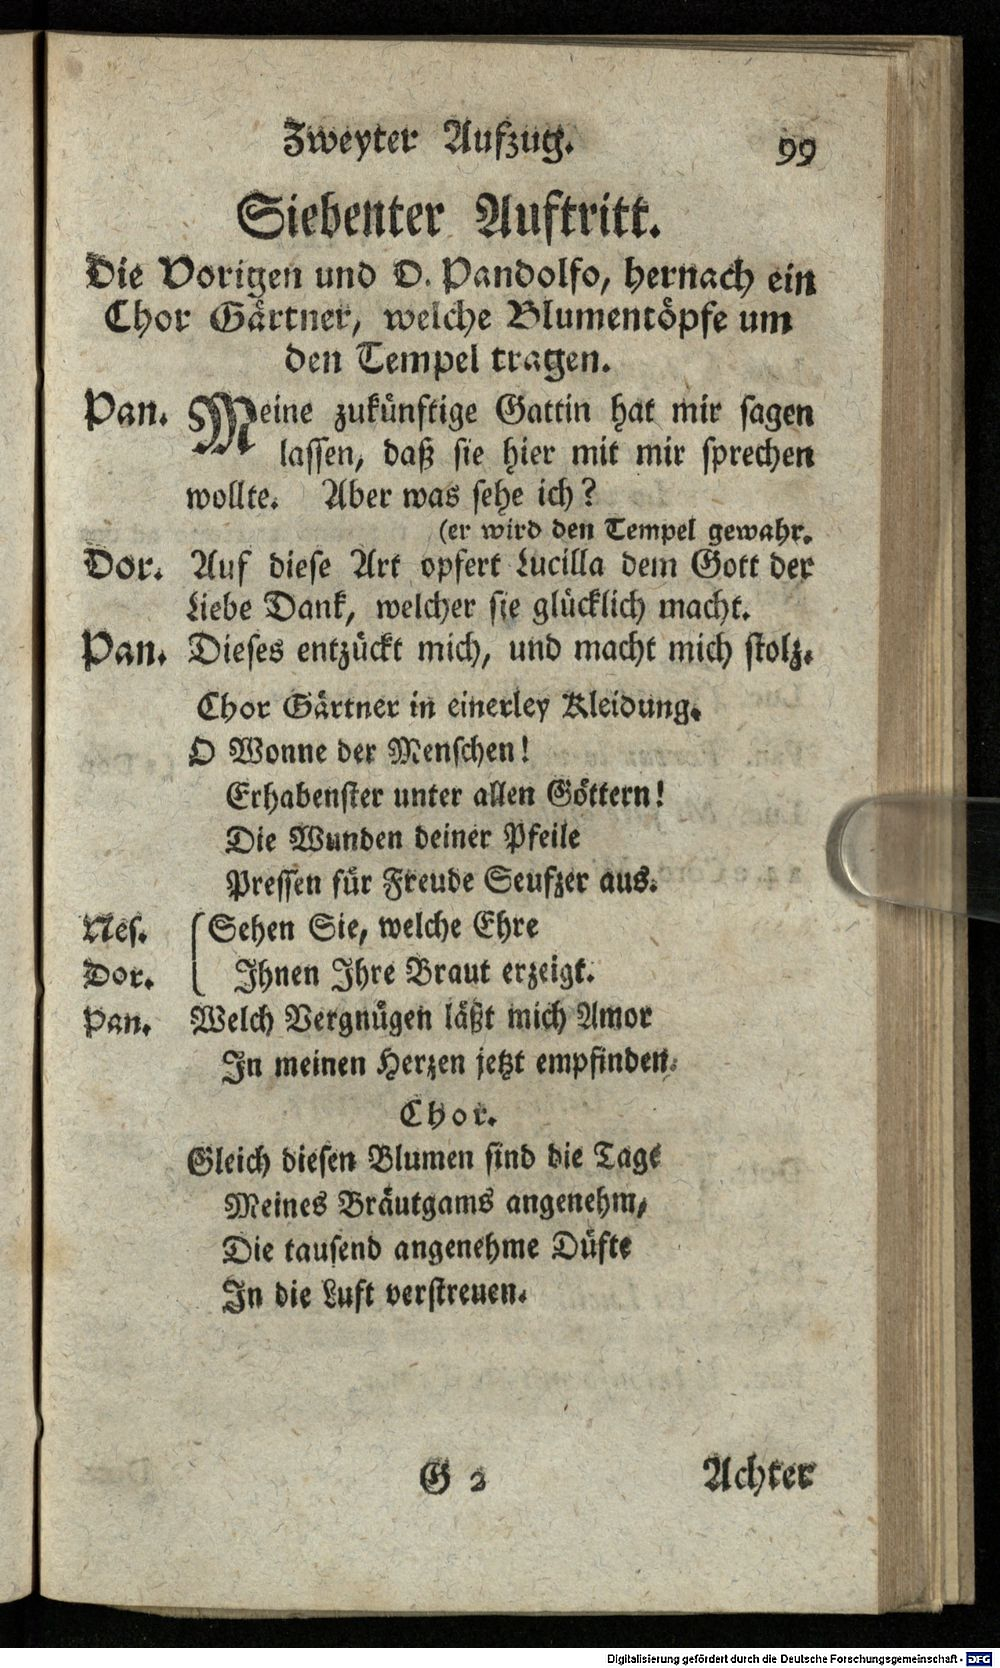 Zweyter Aufzug. 99
Siebenter Auftritt.
Die Vorigen und D. Pandolfo, hernach ein
Chor Gärtner, welche Blumentöpfe um
den Tempel tragen.
Pan. Meine zukünftige Gattin hat mir sagen
lassen, daß sie hier mit mir sprechen
wollte. Aber was sehe ich?
(er wird den Tempel gewahr.
Dor. Auf diese Art opfert Lucilla dem Gott der
Liebe Dank, welcher sie glücklich macht.
Pan. Dieses entzückt mich, und macht mich stolz.
Chor Gärtner in einerley Kleidung.
O Wonne der Menschen!
Erhabenster unter allen Göttern!
Die Wunden deiner Pfeile
Pressen für Freude Seufzer aus.
Nes. Sehen Sie, welche Ehre
Dor. Ihnen Ihre Braut erzeigt.
Pan. Welch Vergnügen läßt mich Amor
In meinen Herzen jetzt empfinden.
Chor.
Gleich diesen Blumen sind die Tage
Meines Bräutgams angenehm,
Die tausend angenehme Düfte
In die Luft verstreuen.
G 2 Achter
Digitalisierung gefördert durch die Deutsche Forschungsgemeinschaft - DFG